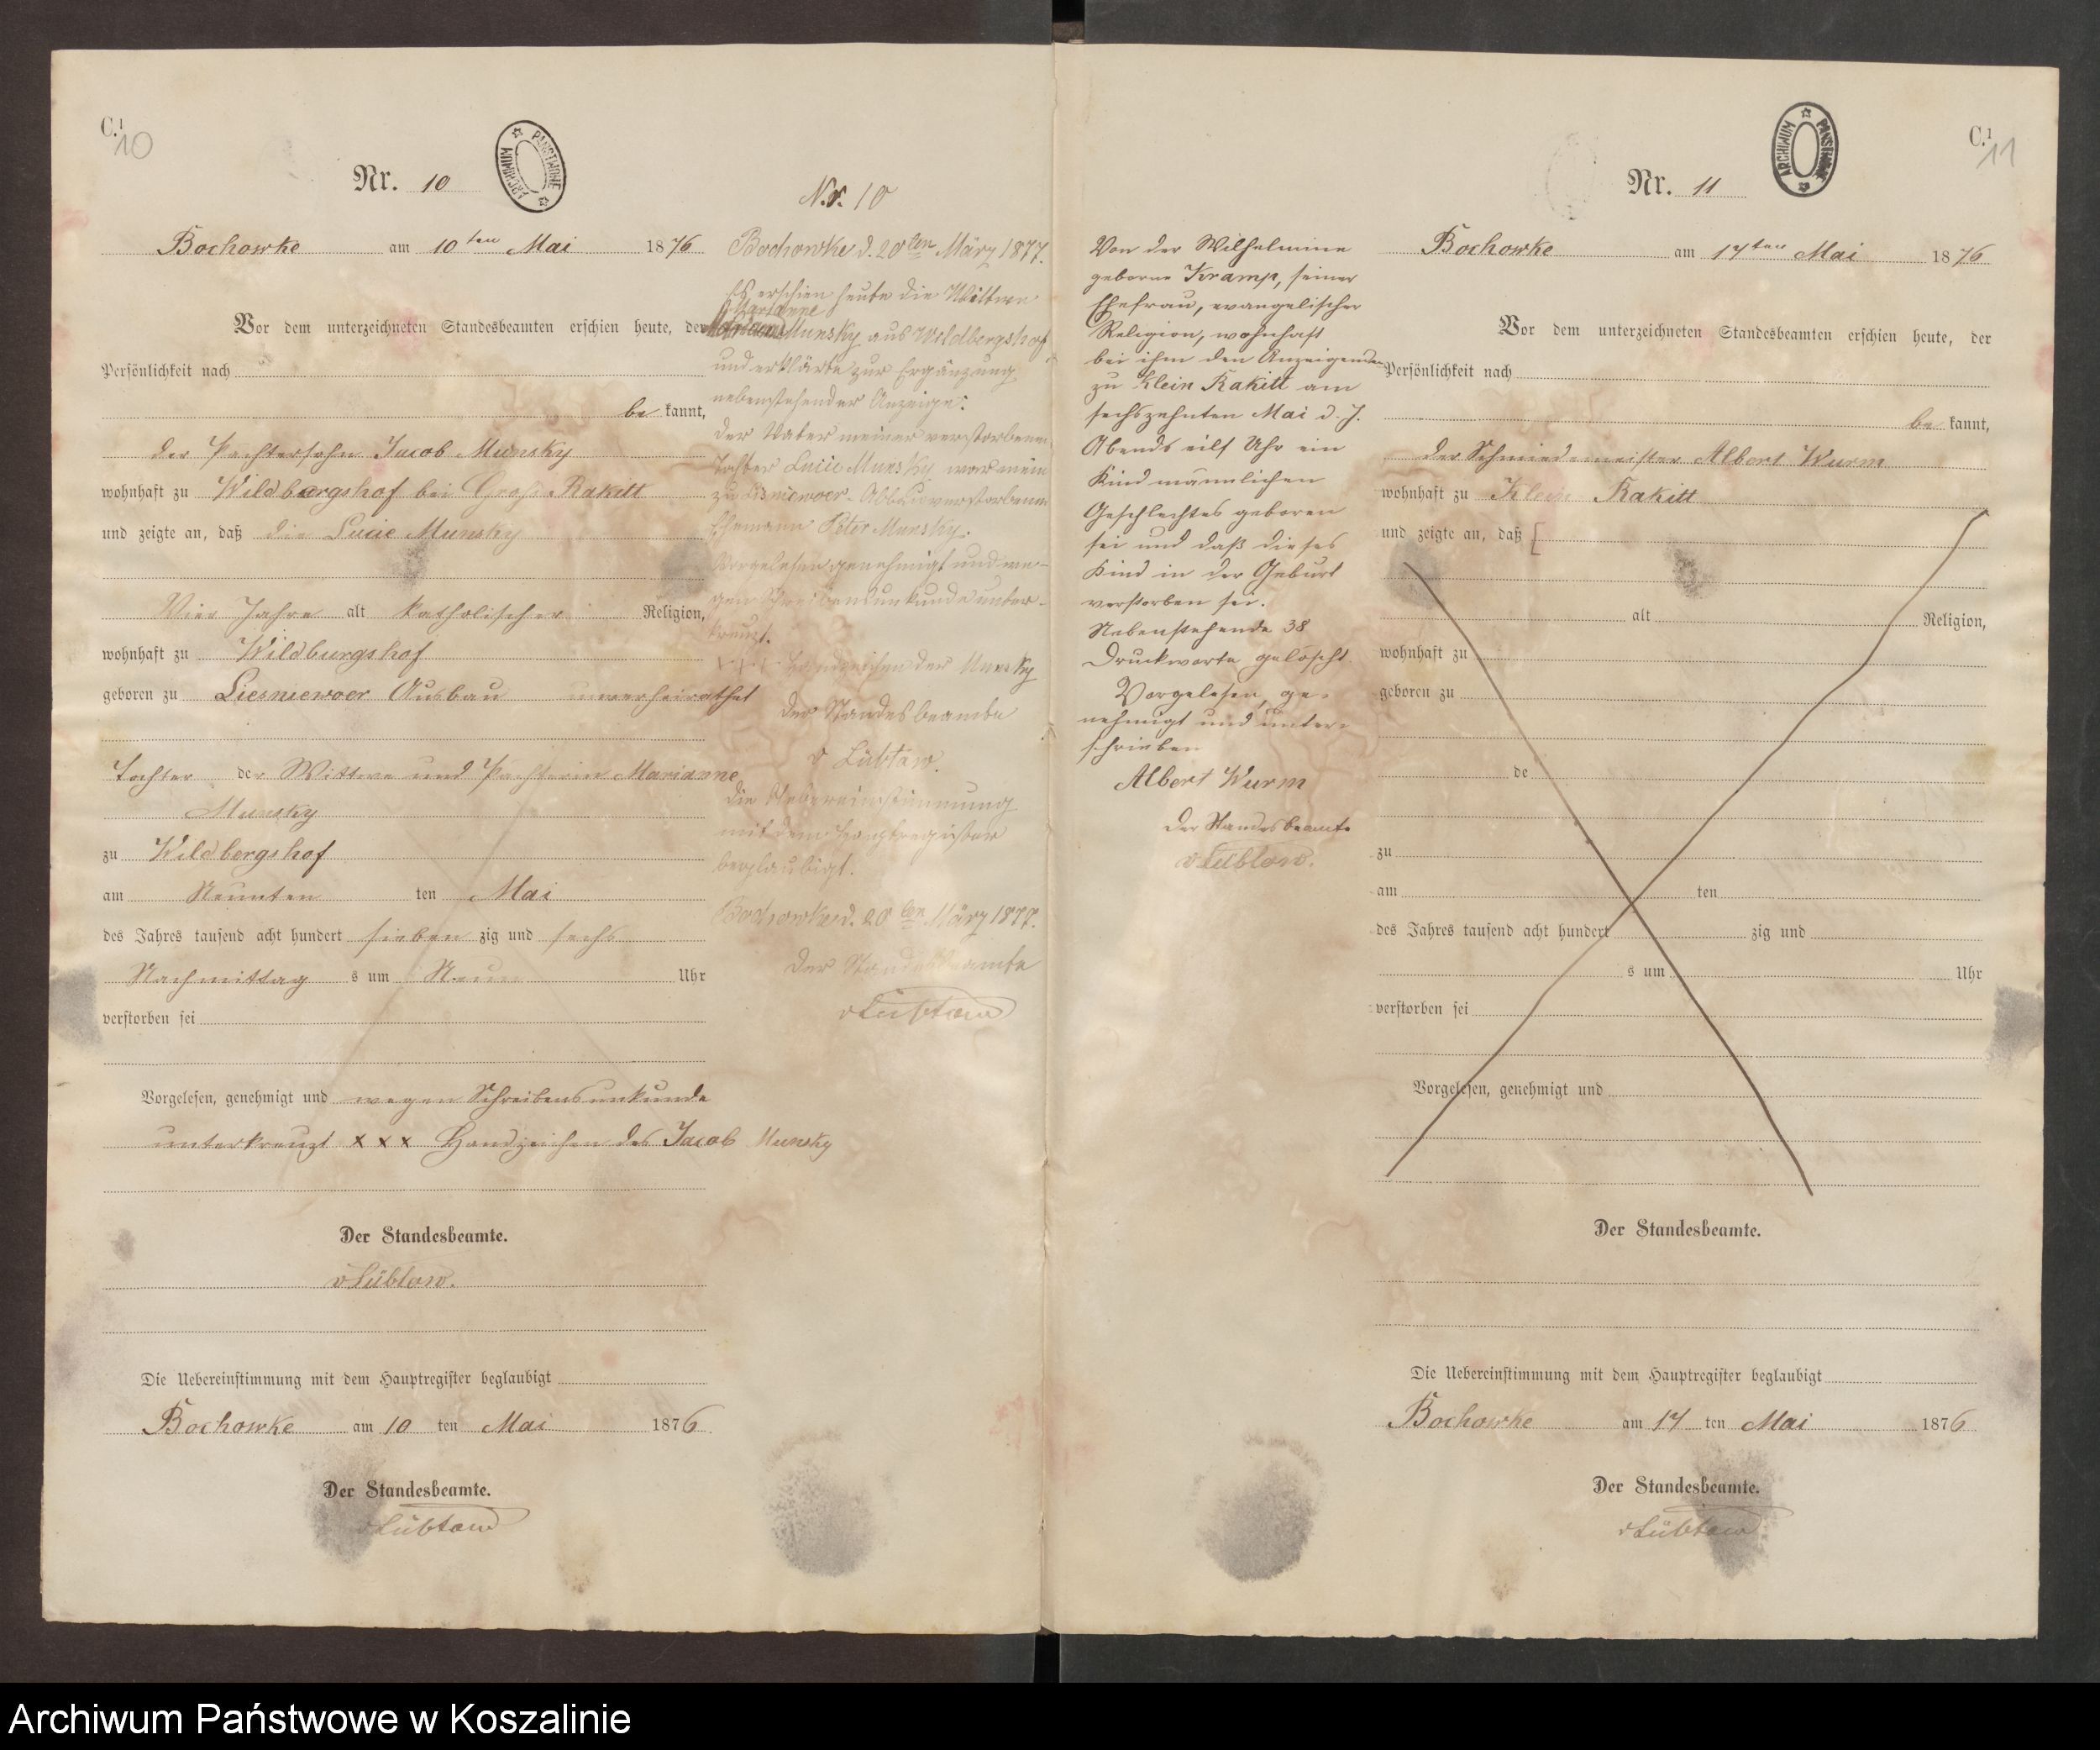 C.1
10
Nr. 10
ARCHIWUM PAŃSTWOWE
Bochowke am 10ten Mai 1876
Vor dem unterzeichneten Standesbeamten erschien heute, der
Persönlichkeit nach
be kannt,
der Pachtersohn Jacob Munsky
wohnhaft zu Wildbergshof bei Groß Rakitt
und zeigte an, daß die Lucie Munsky
Vier Jahre alt katholischer Religion,
wohnhaft zu Wildburgshof
geboren zu Liesniewoer Ausbau unverheirathet
Tochter der Wittwe und Pachterin Marianne
Munsky
zu Wildbergshof
am Neunten ten Mai
des Jahres tausend acht hundert sieben zig und sechs
Nachmittag s um Neun Uhr
verstorben sei
Vorgelesen, genehmigt und wegen Schreibensunkunde
unterkreuzt x x x Handzeichen des Jacob Munsky
Der Standesbeamte.
v Lübtow.
Die Uebereinstimmung mit dem Hauptregister beglaubigt
Bochowke am 10 ten Mai 1876
Der Standesbeamte.
v Lübtow
Nr. 10
Bochowke d. 20ten März 1877.
Es erschien heute die Wittwe
Marianne
Munsky aus Wildbergshof
und erklärte zur Ergänzung
nebenstehender Anzeige:
der Vater meiner verstorbenen
Tochter Lucie Munsky war mein
zu verstorbener
Ehemann Peter Munsky.
Vorgelesen genehmigt und we-
gen Schreibensunkunde unter-
kreuzt.
+++ Handzeichen der Munsky
Der Standesbeamte
v Lübtow.
Die Uebereinstimmung
mit dem Hauptregister
beglaubigt.
Bochowke d. 20ten März 1877.
Der Standesbeamte
v Lübtow
C.1
11
Nr. 11
ARCHIWUM PAŃSTWOWE
Bochowke am 17ten Mai 1876
Vor dem unterzeichneten Standesbeamten erschien heute, der
Persönlichkeit nach
be kannt,
der Schmiedemeister Albert Wurm
wohnhaft zu Klein Rakitt
und zeigte an, daß [
alt Religion,
wohnhaft zu
geboren zu
de
zu
am ten
des Jahres tausend acht hundert zig und
s um Uhr
verstorben sei
Vorgelesen, genehmigt und
Der Standesbeamte.
Die Uebereinstimmung mit dem Hauptregister beglaubigt
Bochowke am 17 ten Mai 1876
Der Standesbeamte.
v Lübtow
Von der Wilhelmine
geborne Kramp, seiner
Ehefrau, evangelischer
Religion, wohnhaft
bei ihm den Anzeigenden
zu Klein Rakitt am
sechszehnten Mai d. J.
Abends eilf Uhr ein
Kind männlichen
Geschlechtes geboren
sei und daß dieses
Kind in der Geburt
verstorben sei.
Nebenstehende 38
Druckworte gelöscht.
Vorgelesen, ge-
nehmigt und unter-
schrieben
Albert Wurm
Der Standesbeamte
v Lübtow.
Archiwum Państwowe w Koszalinie